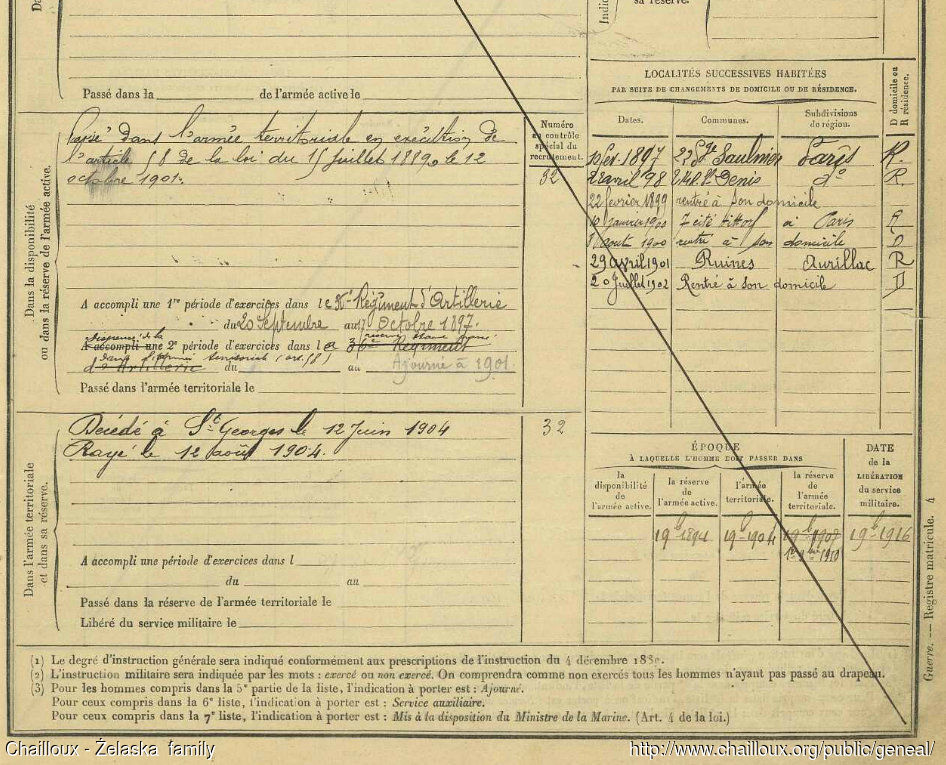 sa réserve.
Passé dans la de l'armée active le
Dans la disponibilité
ou dans la réserve de l'armée active.
Passé dans l'armée territoriale en exécution de
l'article 58 de la loi du 15 juillet 1889, le 12
octobre 1901.
Numéro
au contrôle
spécial du
recrutement.
32
A accompli une 1re période d'exercices dans le Régiment d'Artillerie
du 20 Septembre au 17 Octobre 1897.
Dispensé de la
A accompli une 2e période d'exercices dans le 36e Régiment
d'Artillerie du au Ajourné à 1901
Passé dans l'armée territoriale le
Dans l'armée territoriale
et dans sa réserve.
Décédé à St Georges le 12 Juin 1904
Rayé le 12 août 1904.
32
A accompli une période d'exercices dans l
du au
Passé dans la réserve de l'armée territoriale le
Libéré du service militaire le
LOCALITÉS SUCCESSIVES HABITÉES
PAR SUITE DE CHANGEMENTS DE DOMICILE OU DE RÉSIDENCE.
D domicile ou
R résidence.
Dates. Communes. Subdivisions
de région.
1897 Saulnier Paris R.
2 avril 98 St Denis do R
22 février 1899 rentré à son domicile
10 janvier 1900 7 cité à Paris R
août 1900 rentré à son domicile D
29 avril 1901 Ruines Aurillac R
20 juillet 1902 Rentré à son domicile D
ÉPOQUE
À LAQUELLE L'HOMME DOIT PASSER DANS
la
disponibilité
de
l'armée active.
la réserve
de
l'armée active.
l'armée
territoriale.
la réserve
de
l'armée
territoriale.
DATE
de la
LIBÉRATION
du service
militaire.
19 1894 19 1904 19 19 1916
1910
Guerre. — Registre matricule. 4
(1) Le degré d'instruction générale sera indiqué conformément aux prescriptions de l'instruction du 4 décembre
(2) L'instruction militaire sera indiquée par les mots : exercé ou non exercé. On comprendra comme non exercés tous les hommes n'ayant pas passé au drapeau.
(3) Pour les hommes compris dans la 5e partie de la liste, l'indication à porter est : Ajourné.
Pour ceux compris dans la 6e liste, l'indication à porter est : Service auxiliaire.
Pour ceux compris dans la 7e liste, l'indication à porter est : Mis à la disposition du Ministre de la Marine. (Art. 4 de la loi.)
Chailloux - Żelaska family
http://www.chailloux.org/public/geneal/